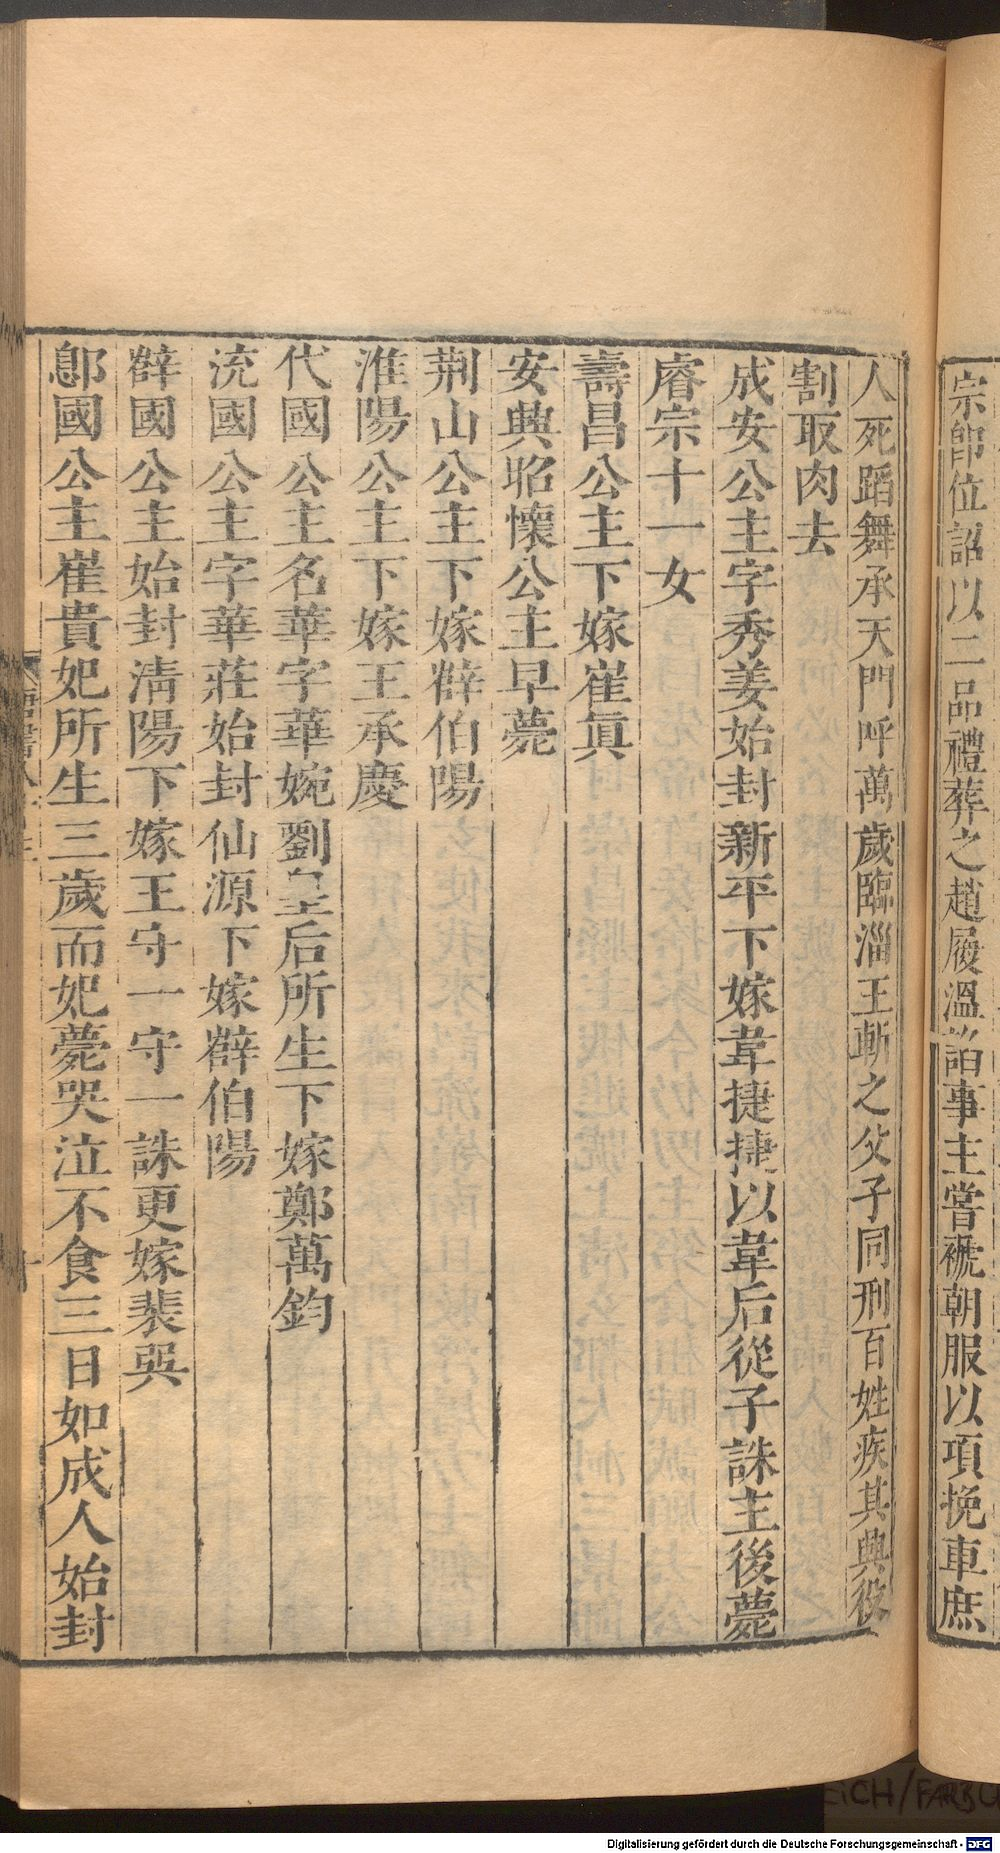 宗卽位詔以二品禮葬之趙履溫諂事主嘗褫朝服以項挽車庶
人死蹈舞承天門呼萬歲臨淄王斬之父子同刑百姓疾其興役
割取肉去
成安公主字秀姜始封新平下嫁韋捷捷以韋后從子誅主後薨
睿宗十一女
壽昌公主下嫁崔眞
安興昭懷公主早薨
荆山公主下嫁薛伯陽
淮陽公主下嫁王承慶
代國公主名華字華婉劉皇后所生下嫁鄭萬鈞
涼國公主字華莊始封仙源下嫁薛伯陽
薛國公主始封清陽下嫁王守一守一誅更嫁裴巽
鄎國公主崔貴妃所生三歲而妃薨哭泣不食三日如成人始封
Digitalisierung gefördert durch die Deutsche Forschungsgemeinschaft - DFG